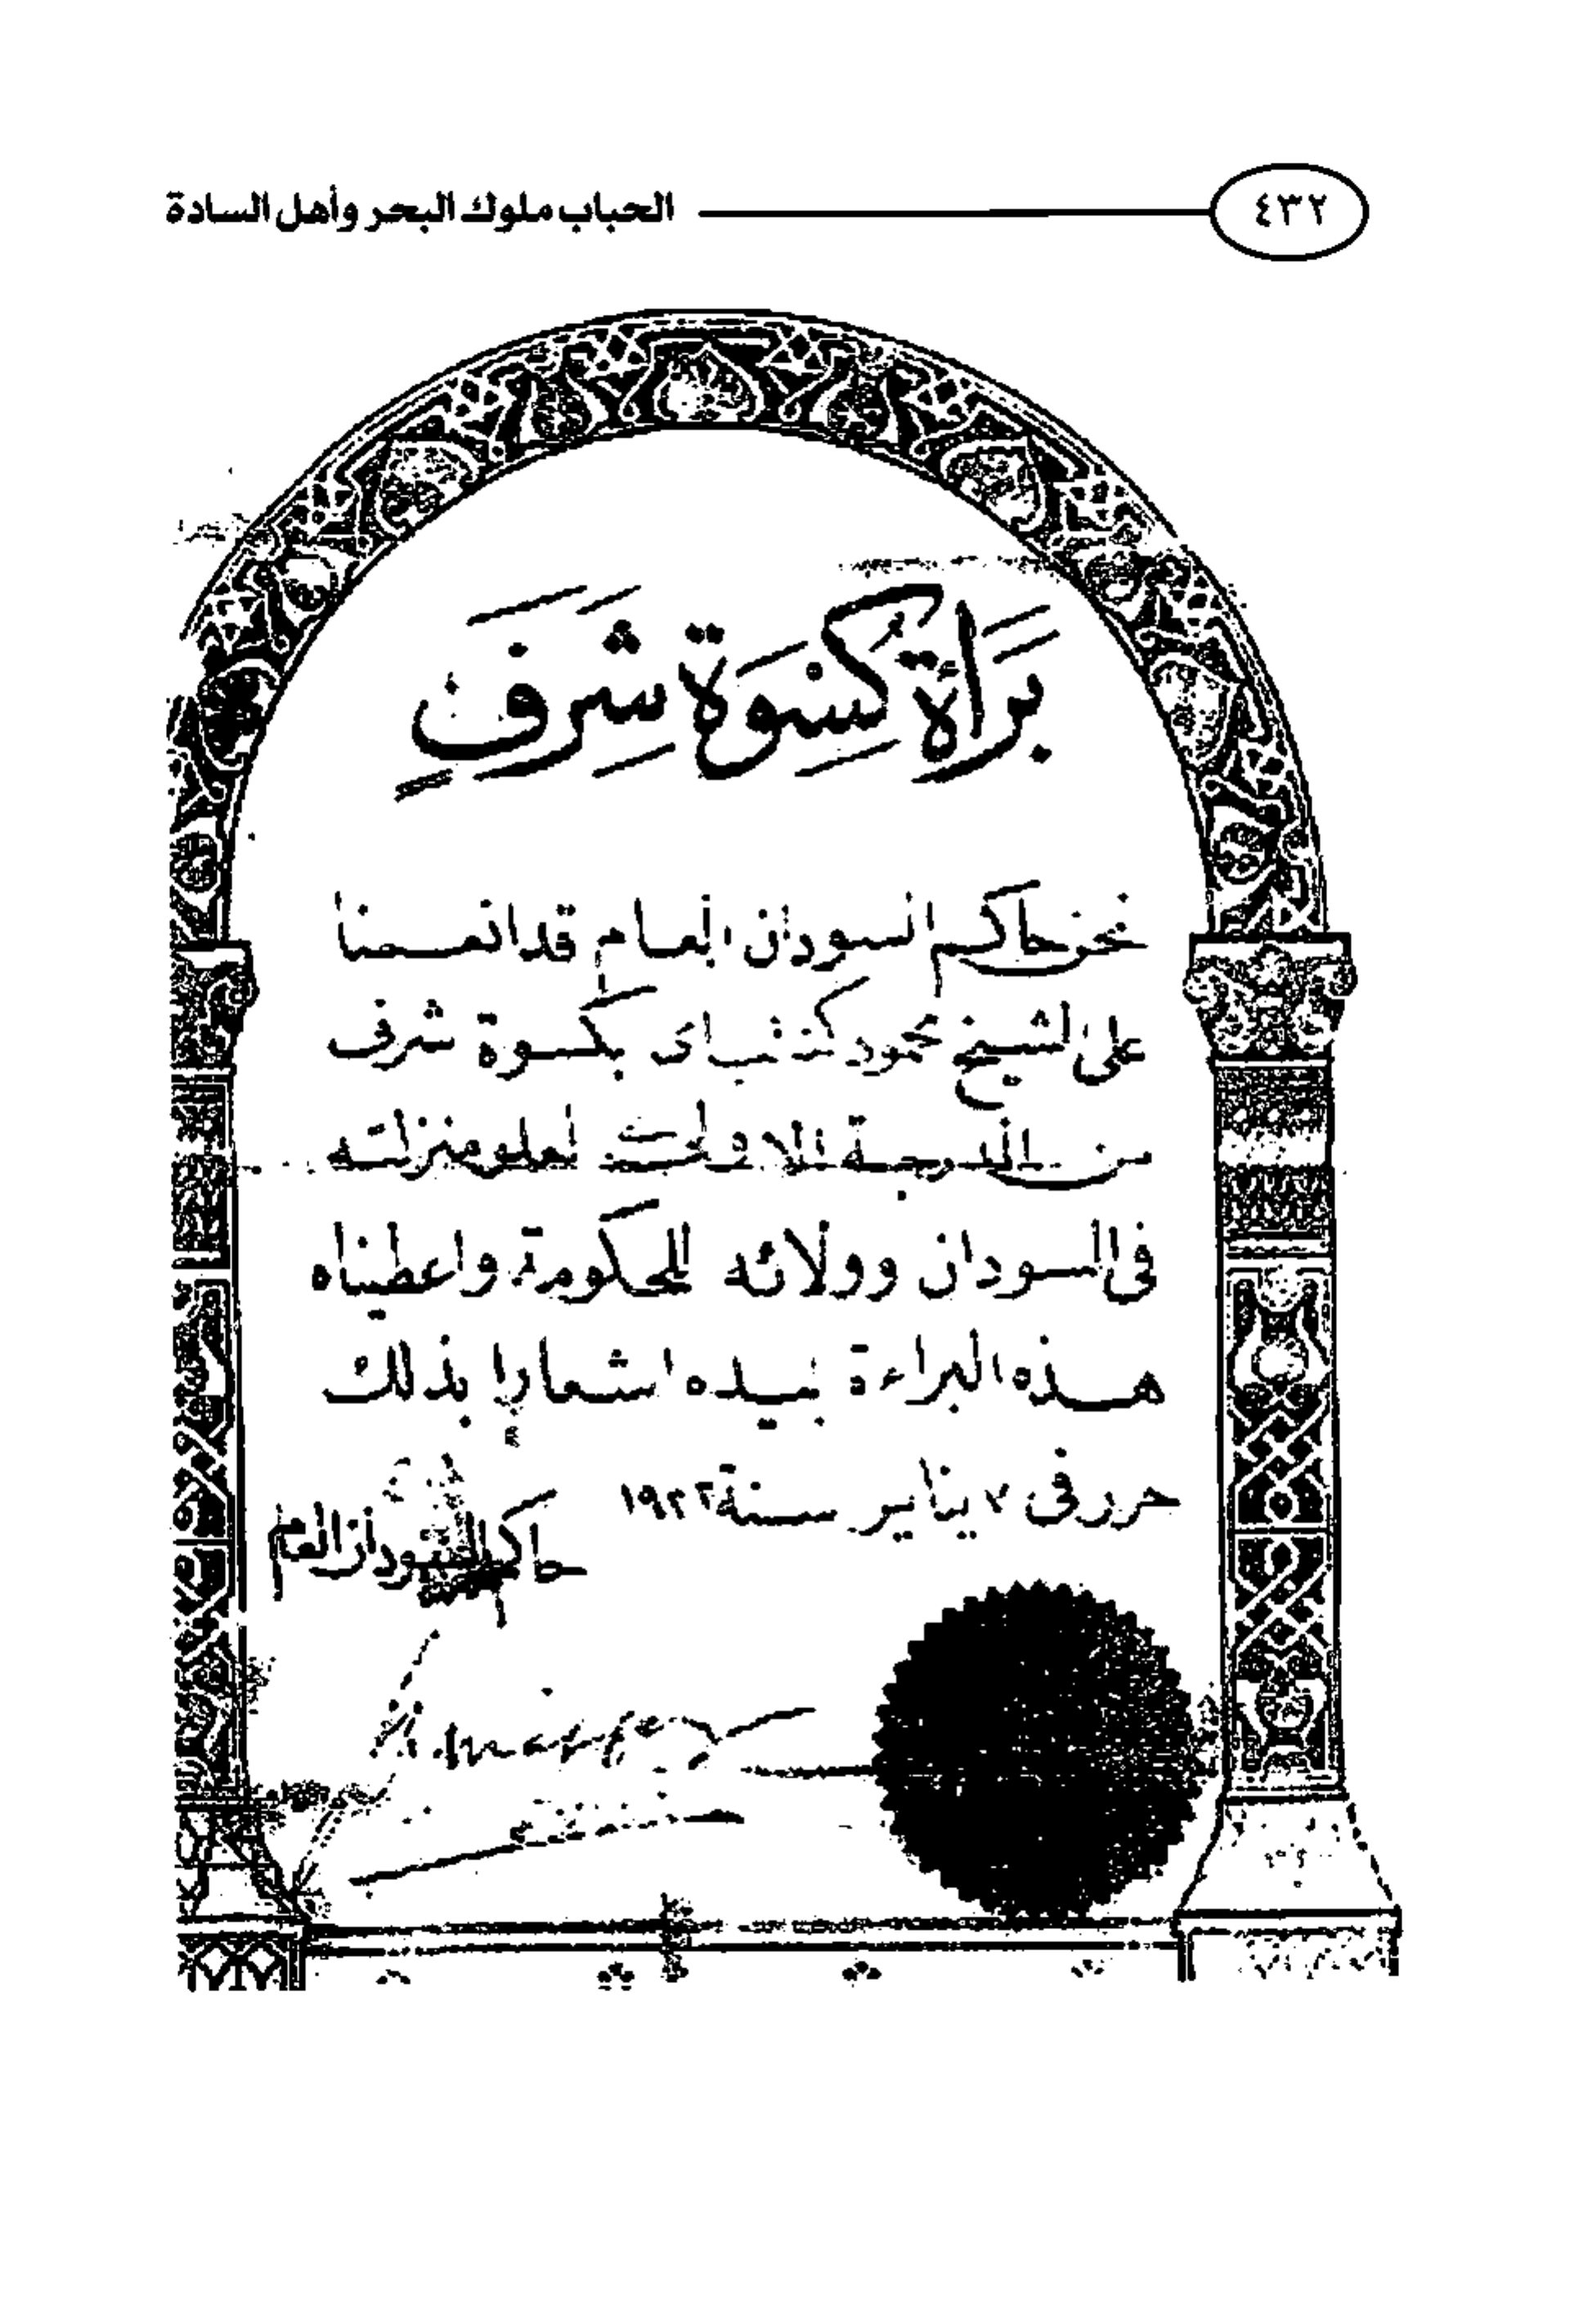 ٤٣٢
الحباب ملوك البحر وأهل السادة
بَرَاءَةُ كُسْوَة شَرَفْ
نحن حاكم السودان العام قد انعمنا
على الشيخ محمود كنتيباى بكسوة شرف
من الدرجة الاولى لعلو منزلته
فى السودان وولائه للحكومة واعطيناه
هذه البراءة بيده اشعارا بذلك
حرر فى ٧ يناير سنة ١٩٢٢
حاكم السودان العام